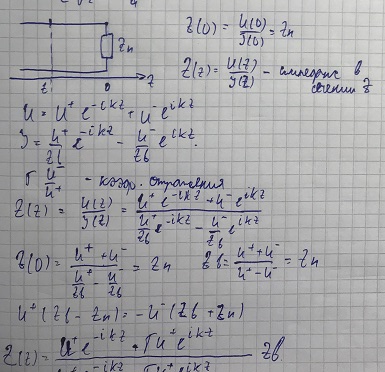 Z(0) = U(0)/J(0) = Zn
Zn
Z(z) = U(z)/J(z) - импеданс в
сечении z
z 0 z
U = U⁺ e^{-ikz} + U⁻ e^{ikz}
J = U⁺/Zв e^{-ikz} - U⁻/Zв e^{ikz}.
Г U⁻/U⁺ - коэф. отражения
Z(z) = U(z)/J(z) = (U⁺ e^{-ikz} + U⁻ e^{ikz})/(U⁺/Zв e^{-ikz} - U⁻/Zв e^{ikz})
Z(0) = (U⁺ + U⁻)/(U⁺/Zв - U⁻/Zв) = Zn Zв (U⁺ + U⁻)/(U⁺ - U⁻) = Zn
U⁺(Zв - Zn) = -U⁻(Zв + Zn)
Z(z) = U⁺ e^{-ikz} + ГU⁺ e^{ikz} Zв